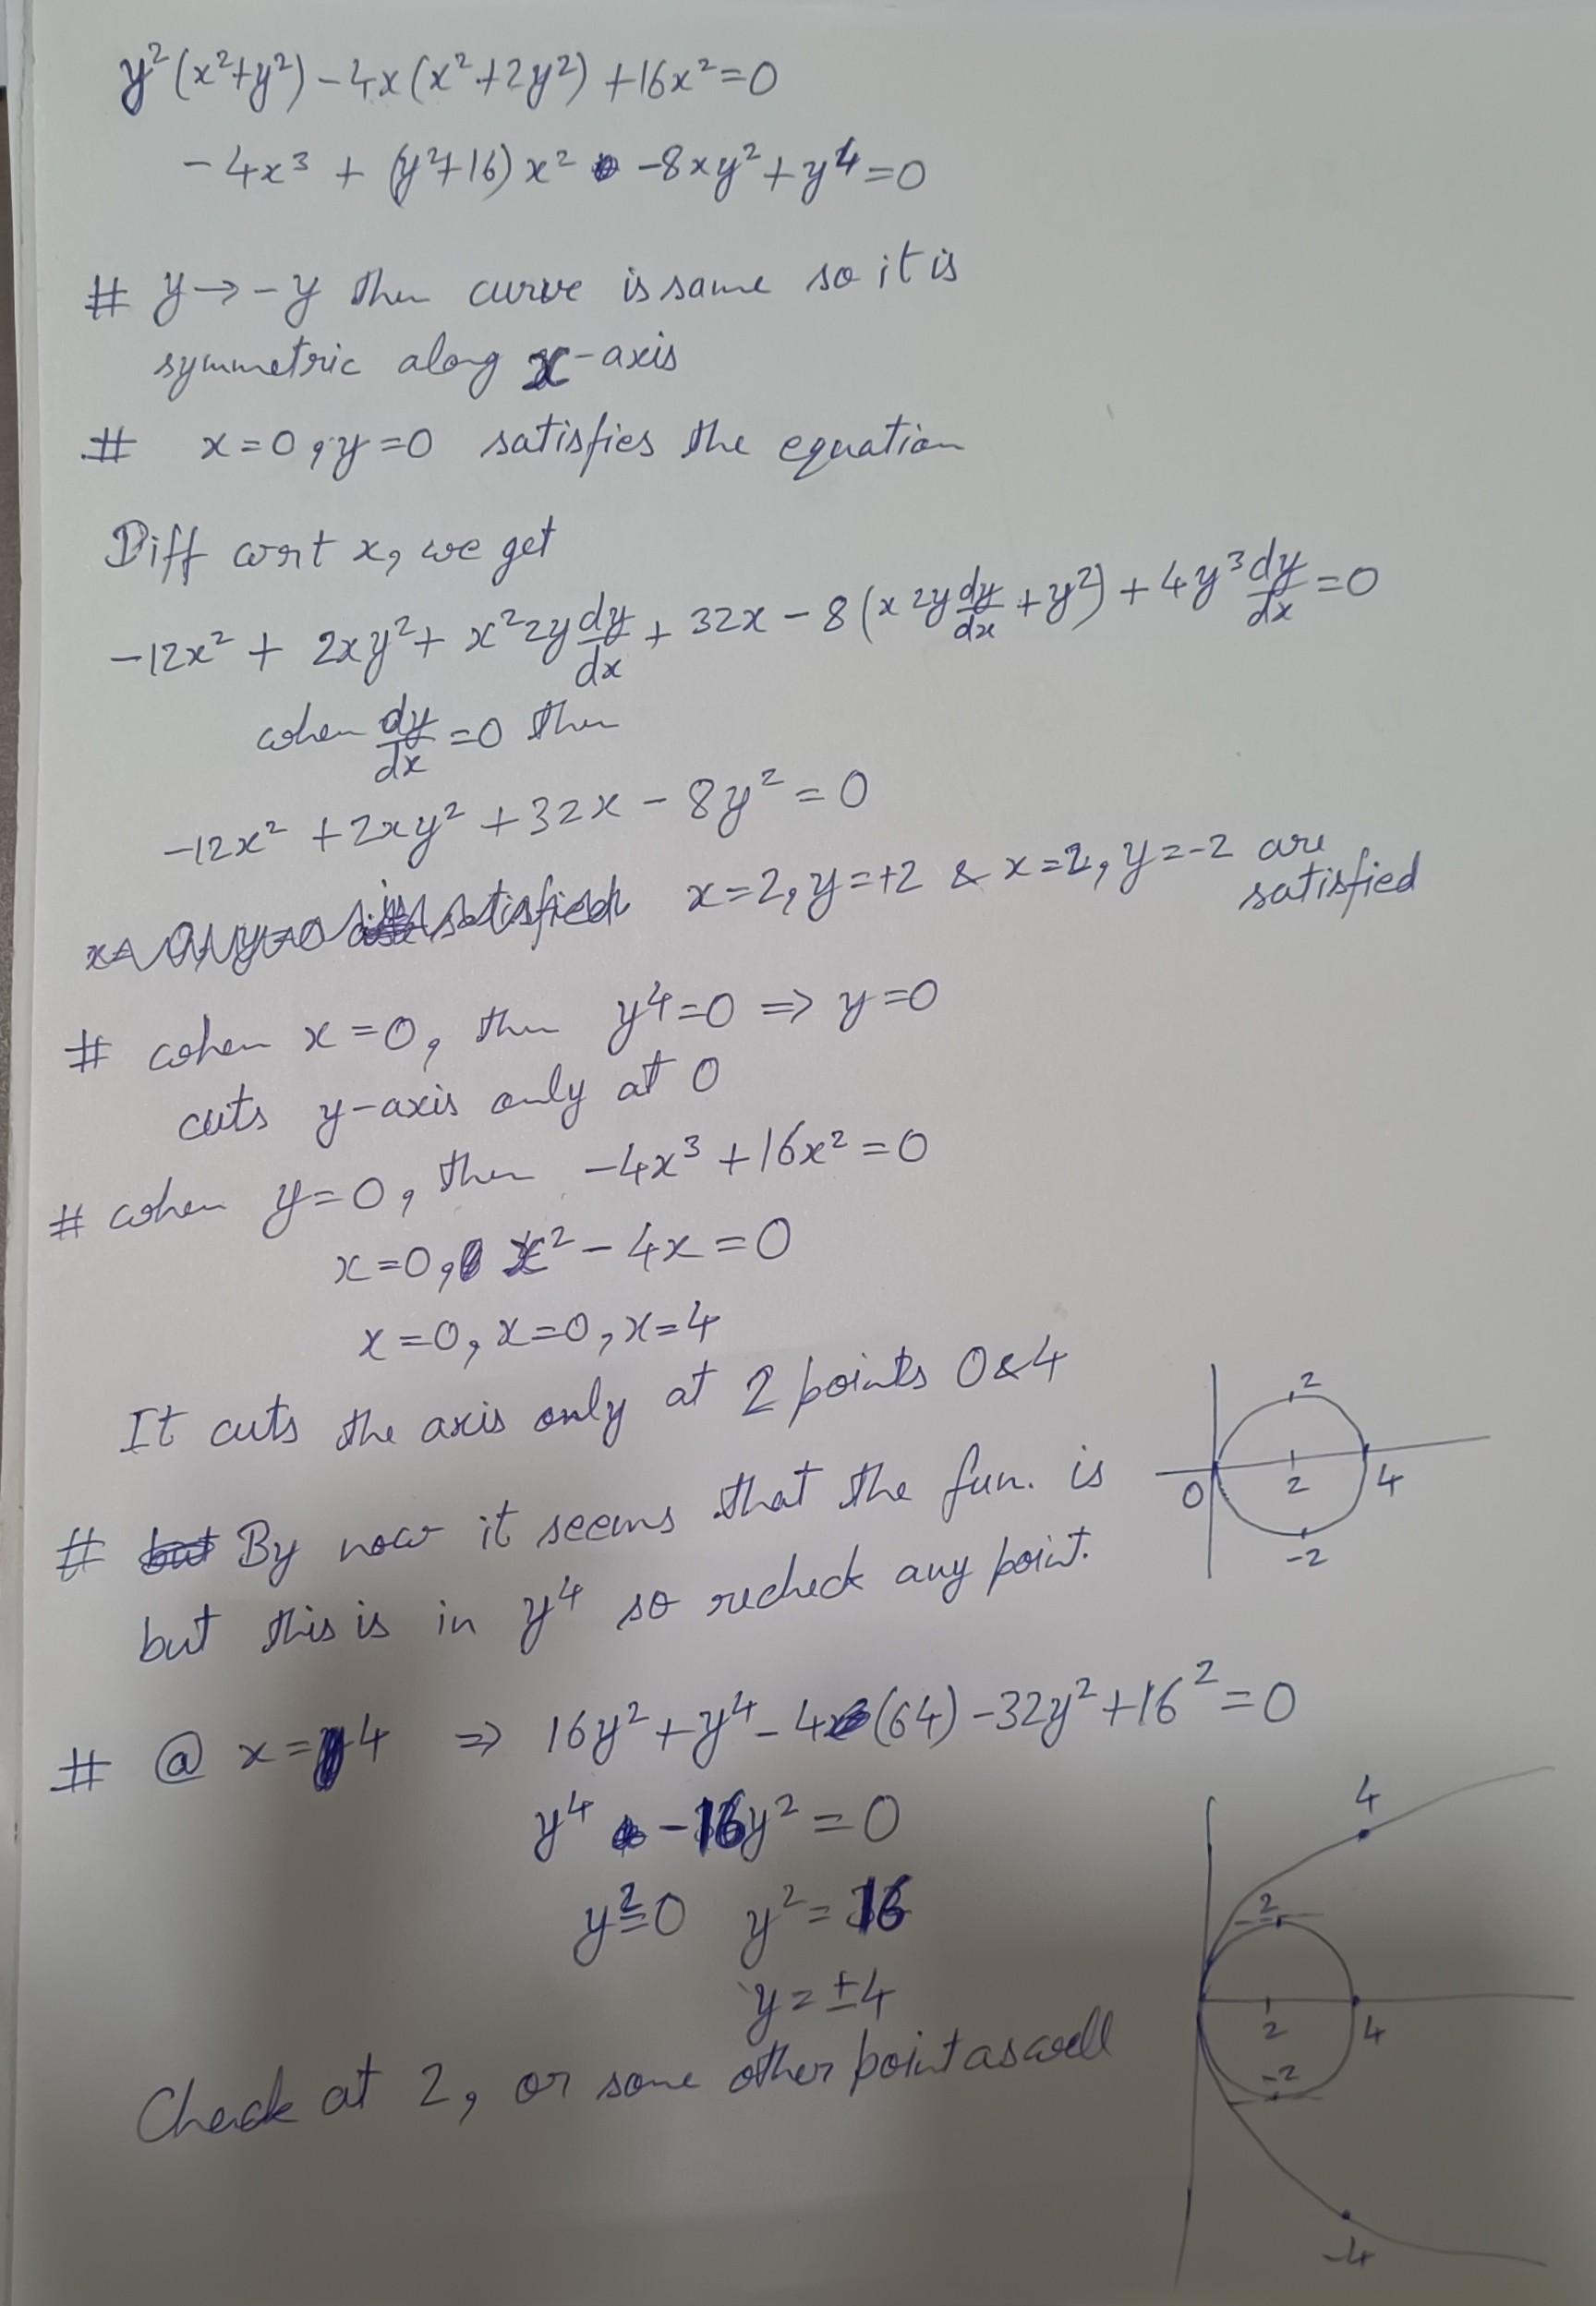 y²(x²+y²) - 4x(x²+2y²) + 16x² = 0
- 4x³ + (y²+16)x² - 8xy² + y⁴ = 0
# y → -y then curve is same so it is
symmetric along x-axis
# x=0, y=0 satisfies the equation
Diff wrt x, we get
-12x² + 2xy² + x²2y dy/dx + 32x - 8(x 2y dy/dx + y²) + 4y³ dy/dx = 0
when dy/dx = 0 then
-12x² + 2xy² + 32x - 8y² = 0
x=2, y=+2 & x=2, y=-2 are
satisfied
# when x=0, then y⁴=0 ⇒ y=0
cuts y-axis only at 0
# when y=0, then -4x³+16x²=0
x=0, x²-4x=0
x=0, x=0, x=4
It cuts the axis only at 2 points 0&4
2
0 2 4
-2
# but By now it seems that the fun. is
but this is in y⁴ so recheck any point.
# @ x=4 ⇒ 16y²+y⁴-4(64)-32y²+16²=0
y⁴ -16y² = 0
y²=0 y²=16
y=±4
4
2
2 4
-2
-4
Check at 2, or some other point as well